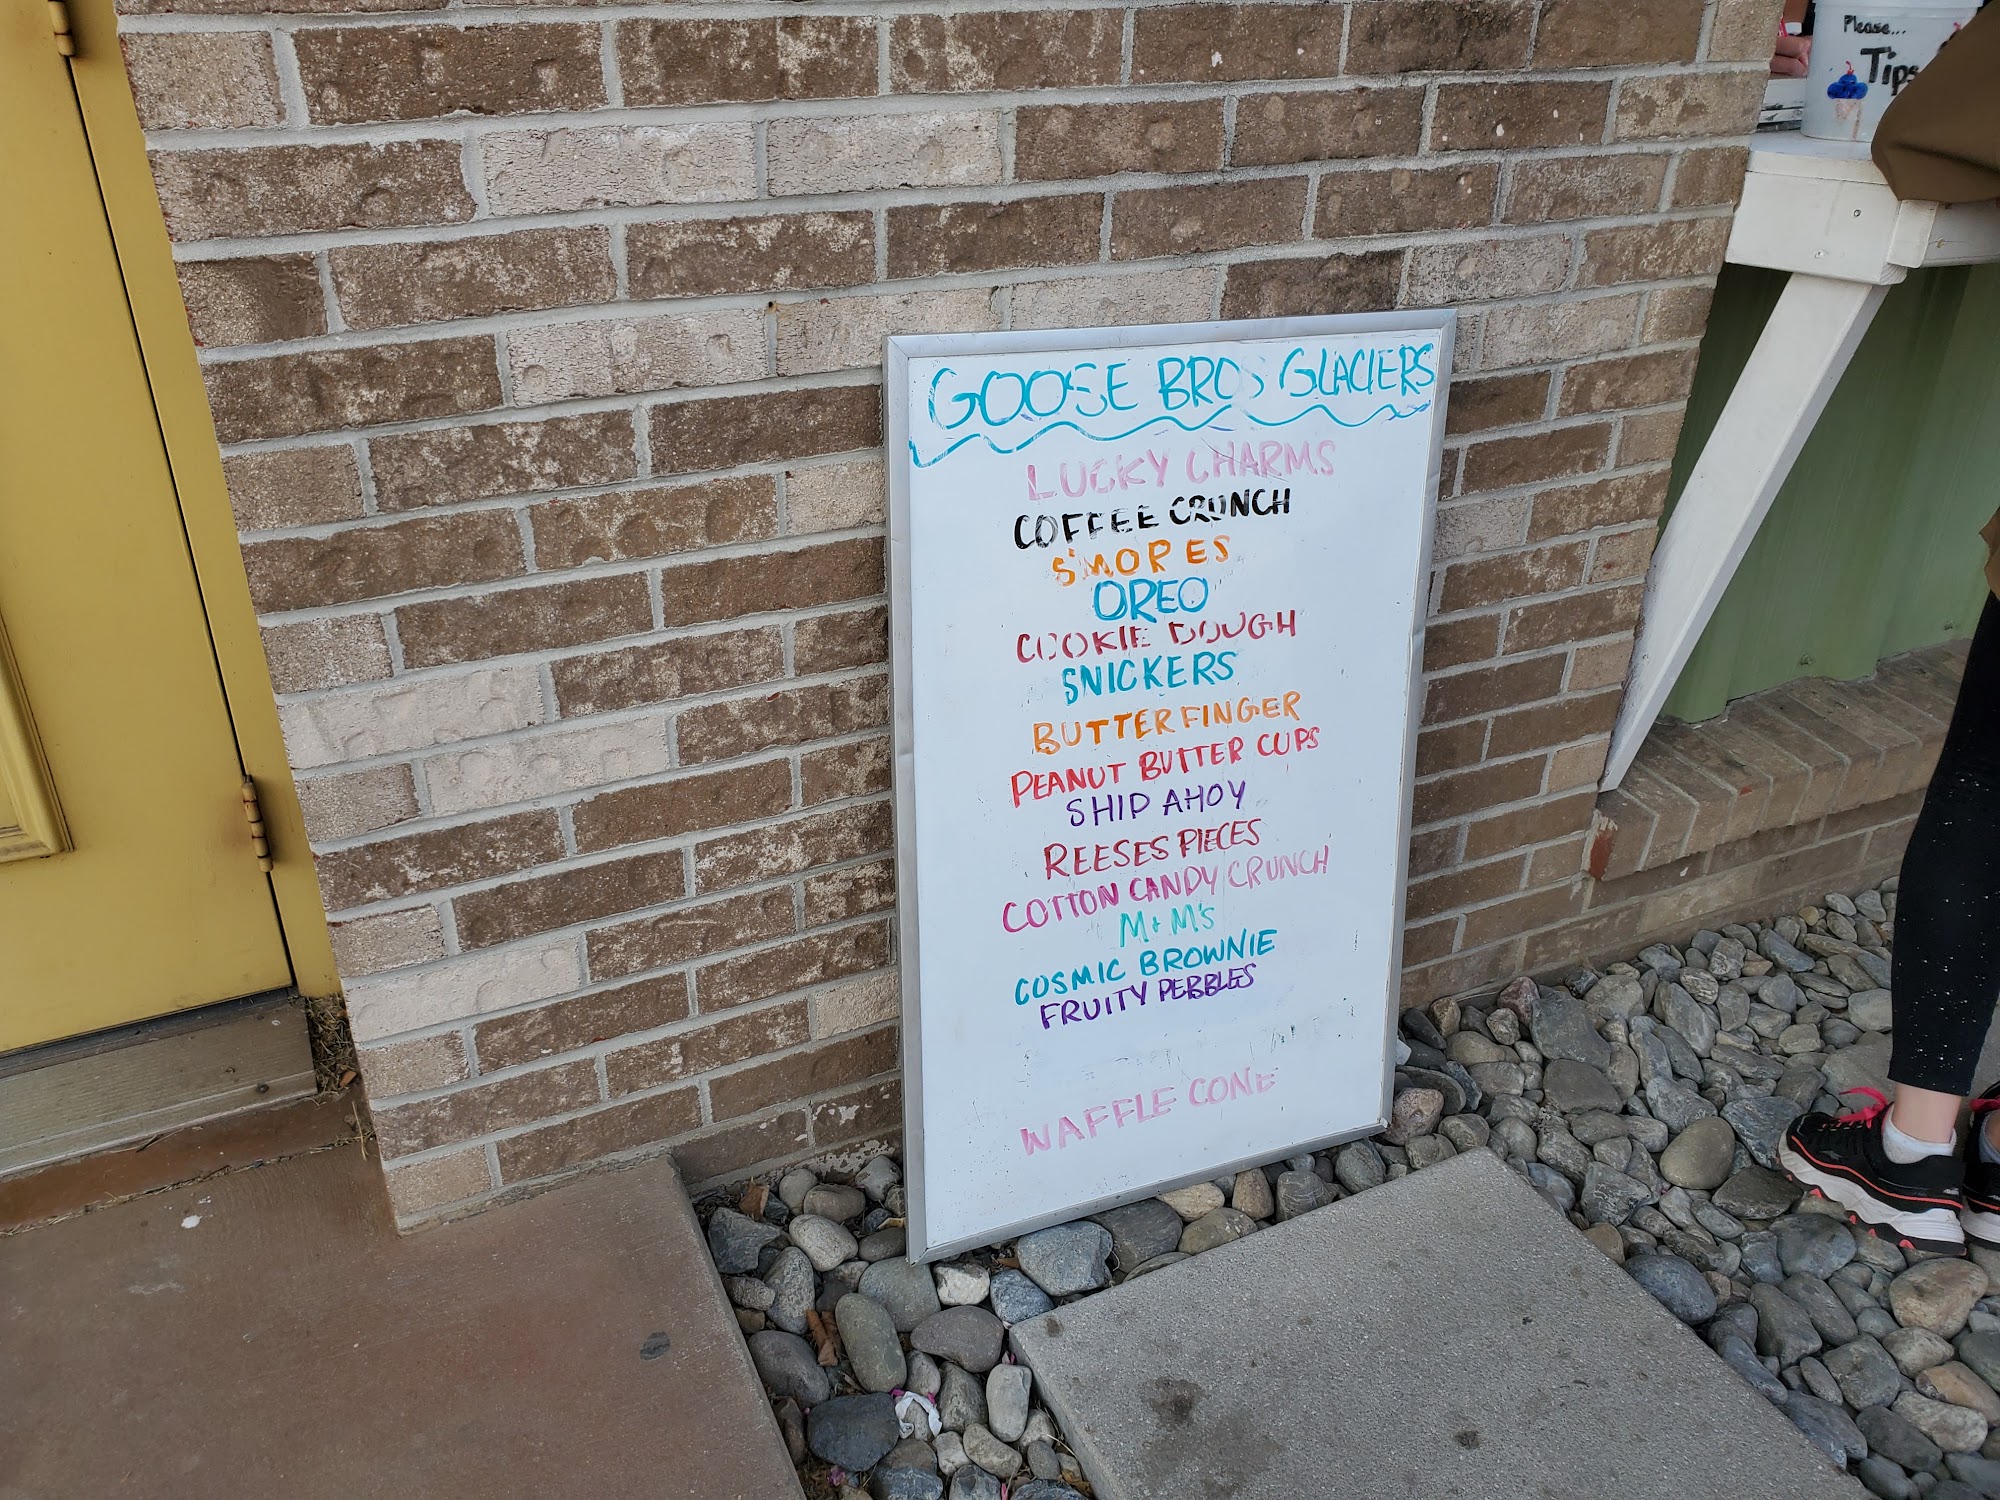 Please...
Tips
GOOSE BROS GLACIERS
LUCKY CHARMS
COFFEE CRUNCH
S'MORES
OREO
COOKIE DOUGH
SNICKERS
BUTTERFINGER
PEANUT BUTTER CUPS
SHIP AHOY
REESES PIECES
COTTON CANDY CRUNCH
M+M'S
COSMIC BROWNIE
FRUITY PEBBLES
WAFFLE CONE